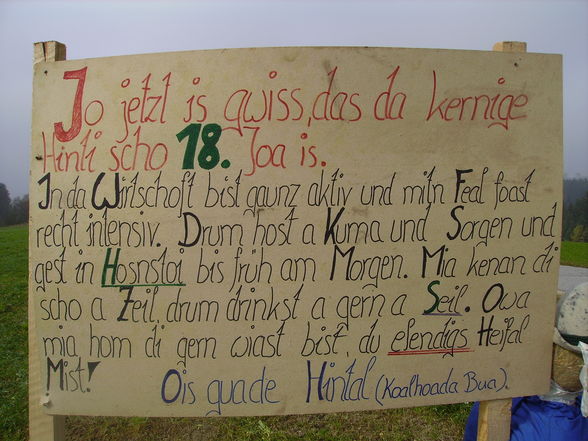 Jo jetzt is gwiss, das da kernige
Hinti scho 18. Joa is.
In da Wirtschoft bist gaunz aktiv und mitn Feal foast
recht intensiv. Drum host a Kuma und Sorgen und
gest in Hosnstoi bis früh am Morgen. Mia kenan di
scho a Zeil, drum drinkst a gern a Seil. Owa
mia hom di gern wiast bist, du elendigs Heifal
Mist!
Ois guade Hintal (Koalhoada Bua).